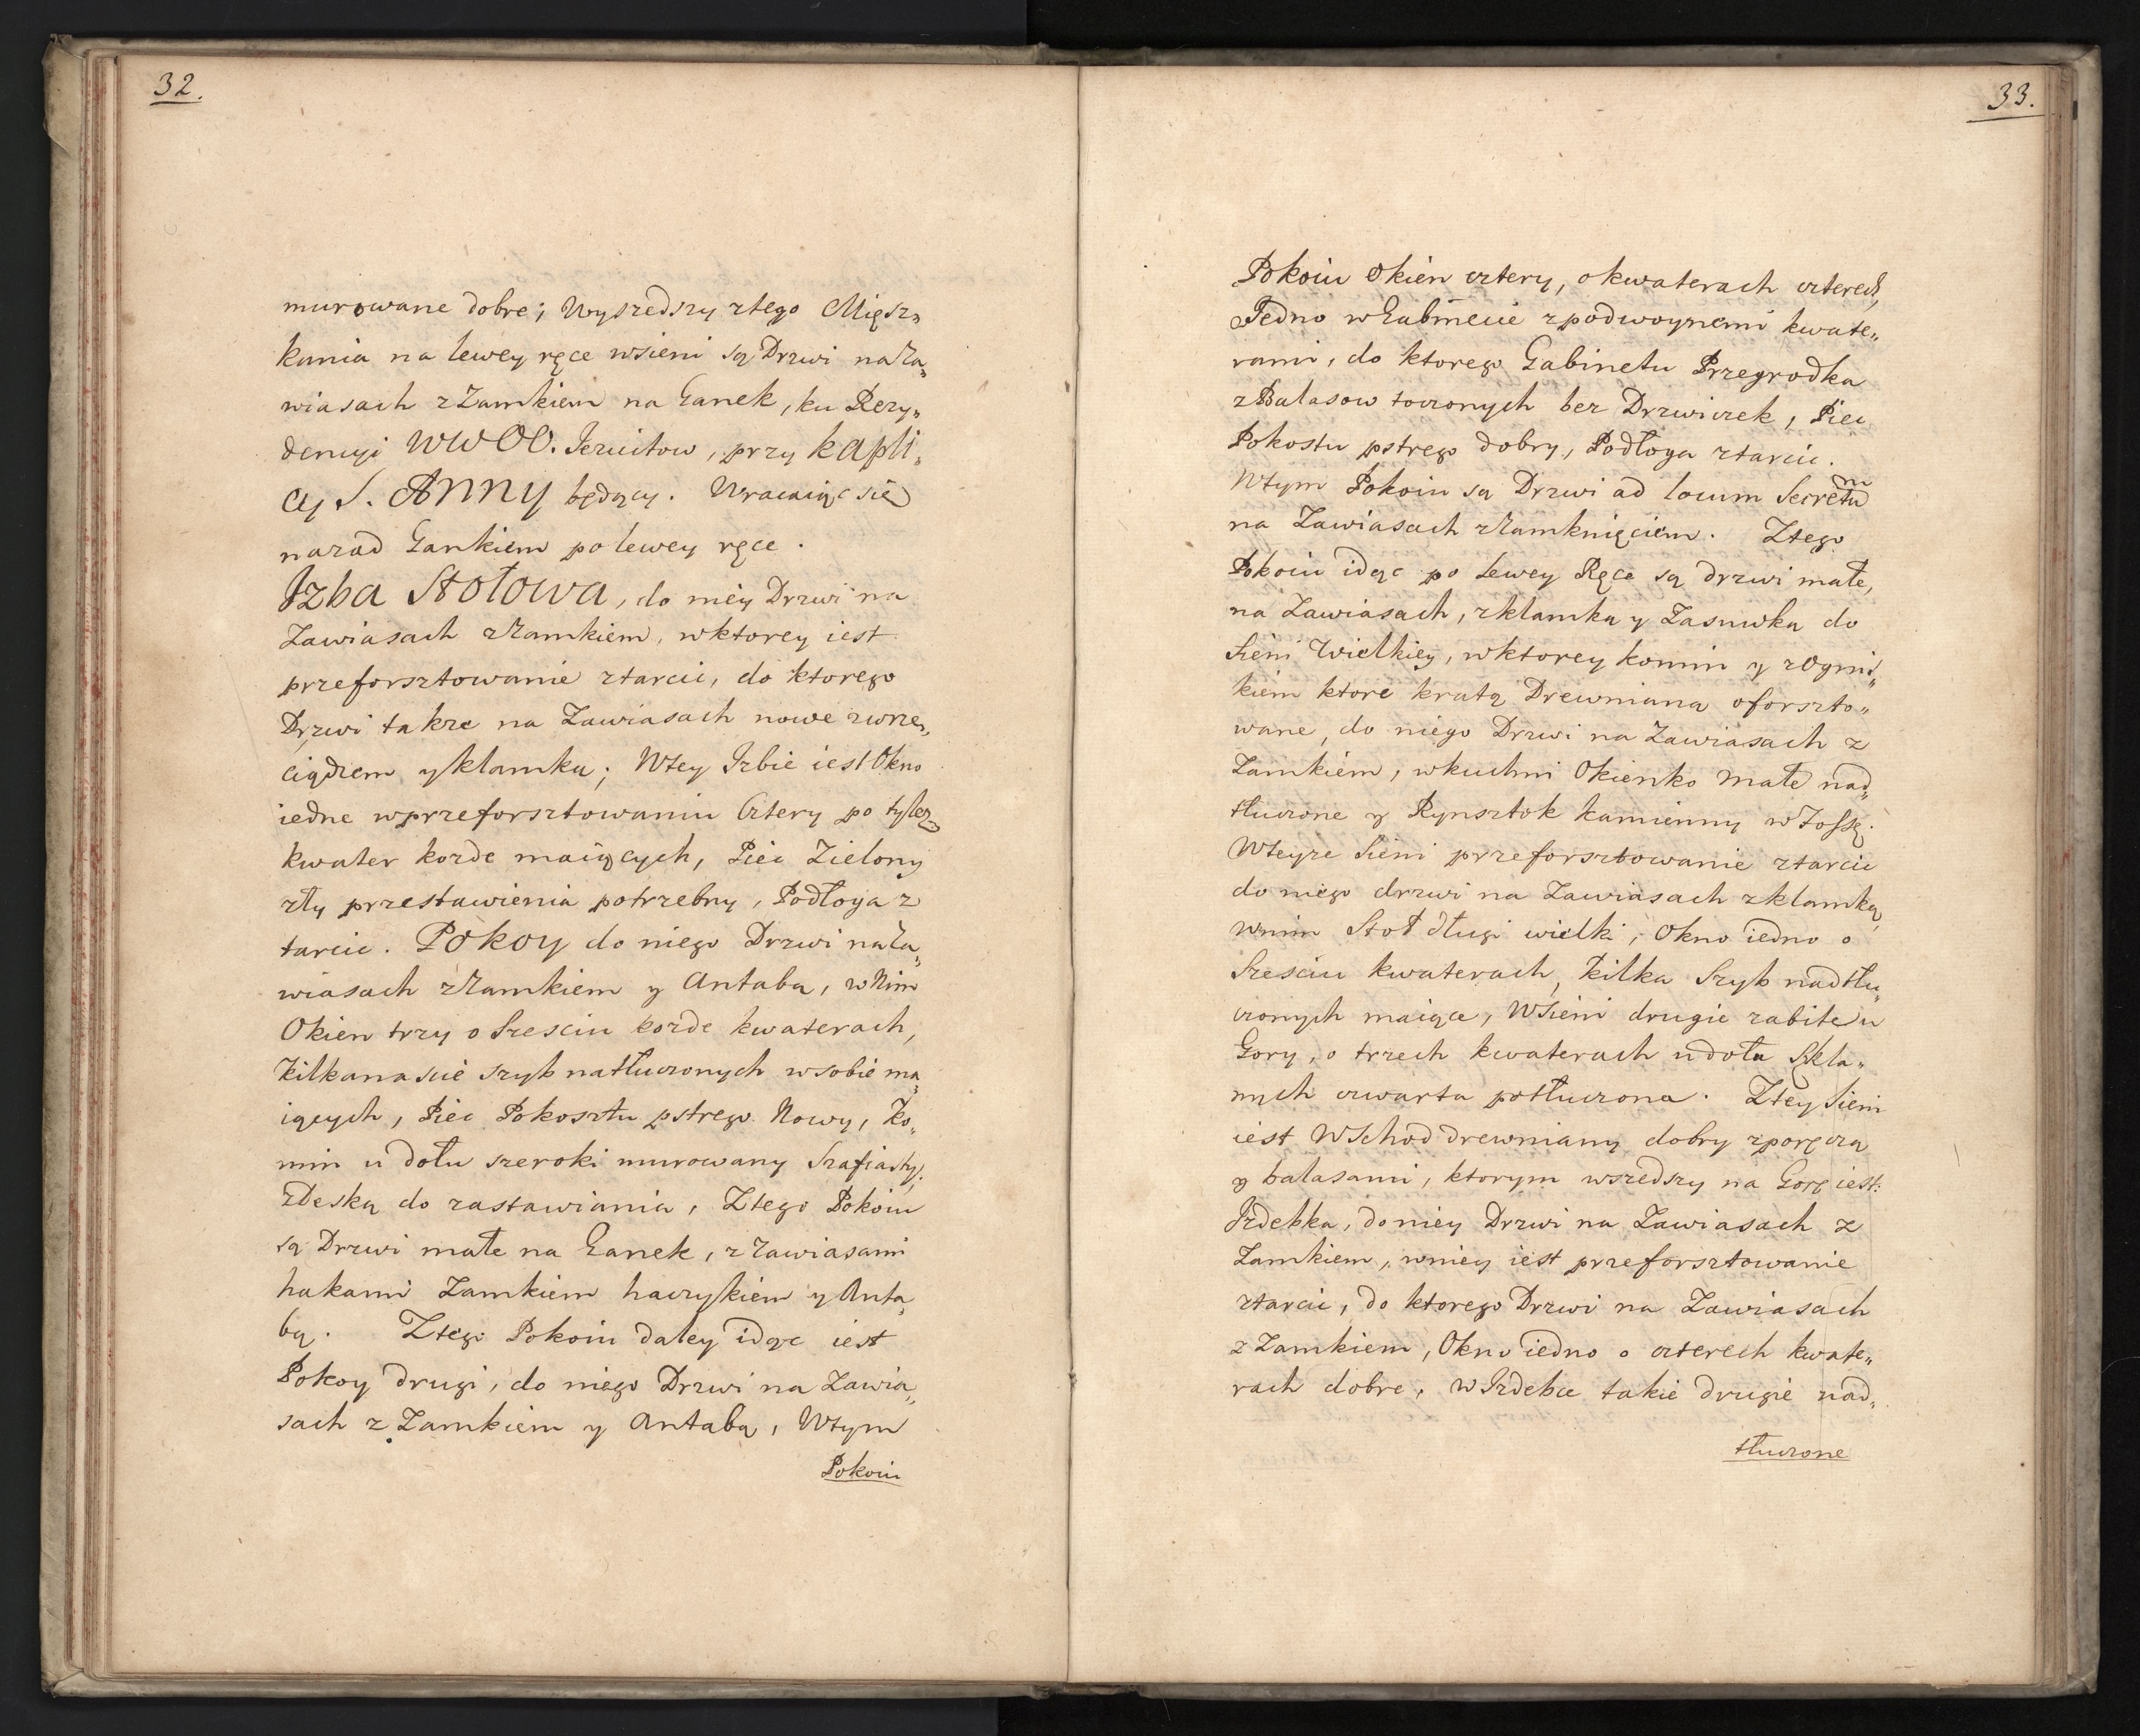 32.
murowane dobre; Wyszedszy ztego Mięsz„
kania na lewey ręce wsieni są Drzwi na Za„
wiasach z Zamkiem na Ganek, ku Rezy„
dencyi WWOO. Jezuitow, przy kapli„
cy S. ANNY będący. Wracaiąc się
nazad Gankiem po lewey ręce.
Izba Stołowa, do niéy Drzwi na
Zawiasach z Zamkiem, wktorey iest
przeforsztowanie ztarcic, do ktorego
Drzwi takze na Zawiasach nowe zwrze„
ciądzem y klamką; Wtey Izbie iest Okno
iedne wprzeforsztowaniu Cztery po tylez
kwater kozde maiących, Piec Zielony
zły przestawienia potrzebny, Podłoga z
tarcic. Pokoy do niego Drzwi na Za„
wiasach z Zamkiem y Antabą, w Nim
Okien trzy o Szesciu kozde kwaterach,
Kilkanascie szyb natłuczonych wsobie ma„
iących, Piec Pokosztu pstrego Nowy, Ko„
min u dołu szeroki murowany Szafiasty,
z Deską do zastawiania, Ztego Pokoiu
są Drzwi małe na Ganek, z Zawiasami
hakami Zamkiem haczykiem y Anta„
bą. Ztego Pokoiu daley idąc iest
Pokoy drugi, do niego Drzwi na Zawia„
sach z Zamkiem y Antabą, Wtym
Pokoiu
33.
Pokoiu Okien cztery, o kwaterach czterech,
Jedno w Gabinecie zpodwoynemi kwate„
rami, do ktorego Gabinetu Przegrodka
z Balasow toczonych bez Drzwiczek, Piec
Pokostu pstrego dobry, Podłoga ztarcic.
Wtym Pokoiu są Drzwi ad locum Secretum
na Zawiasach z Zamknięciem. Ztego
Pokoiu idąc po Lewey Ręce są drzwi małe,
na Zawiasach, zklamką y Zasuwką do
Sieni Wielkiey, wktorey komin y z Ognis„
kiem ktore kratą Drewnianą oforszto„
wane, do niego Drzwi na Zawiasach z
Zamkiem, wkuchni Okienko Małe nad„
tłuczone y Rynsztok kamienny w Fossę.
Wteyze Sieni przeforsztowanie ztarcic
do niego drzwi na Zawiasach zklamką,
wnim Stoł długi wielki, Okno iedno o
Szesciu kwaterach, Kilka Szyb nadtłu„
czonych maiące, W Sieni drugie zabite u
Gory, o trzech kwaterach u dołu Szkla„
nych czwarta potłuczona. Ztey Sieni
iest Wschod drewniany dobry zporęczą
y balasami, ktorym wszedszy na Gorę iest:
Izdebka, do niéy Drzwi na Zawiasach z
Zamkiem, wniey iest przeforsztowanie
ztarcic, do ktorego Drzwi na Zawiasach
z Zamkiem, Okno iedno o czterech kwate„
rach dobre, w Izdebce takie drugie nad„
tłuczone